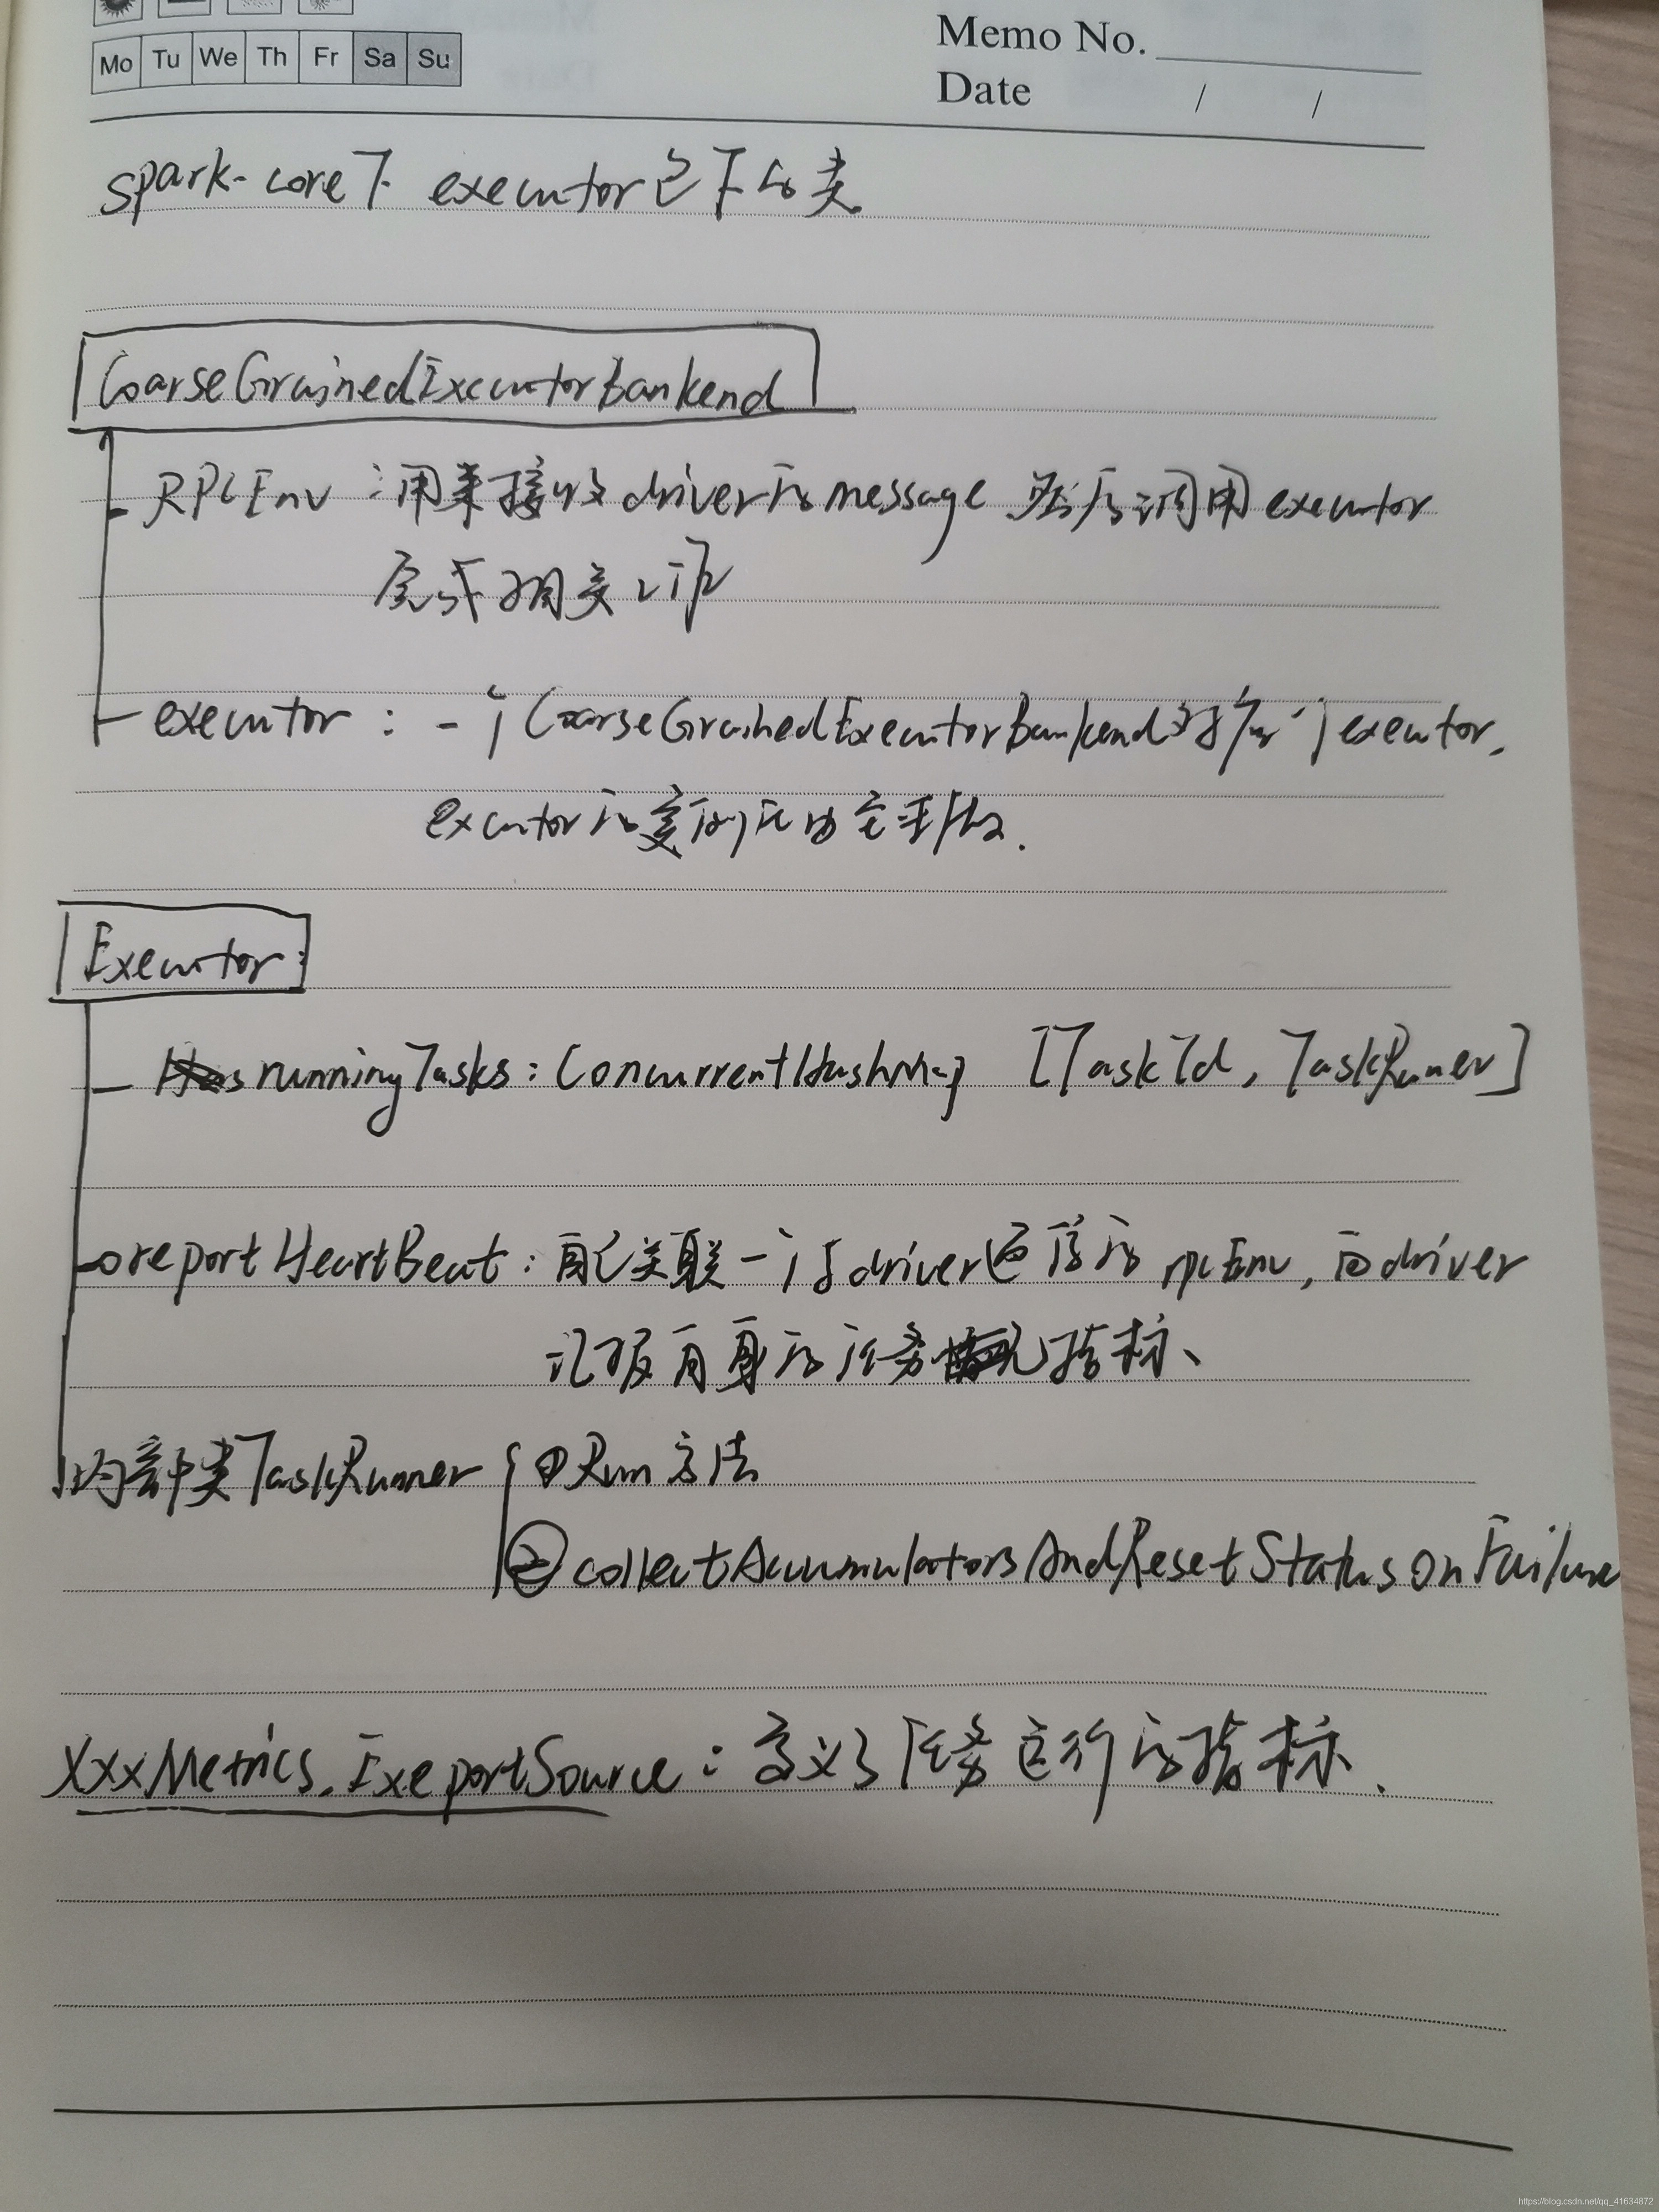 Mo Tu We Th Fr Sa Su
Memo No.
Date / /
spark-core下 executor包下的类
CoarseGrainedExecutorBankend
RPCEnv:用来接收driver的message 然后调用executor
完成相关工作
executor:一个CoarseGrainedExecutorBankend对应一个executor,
executor的实例化由它来做.
Executor:
runningTasks:ConcurrentHashMap [TaskId, TaskRunner]
reportHeartBeat:自己关联一个与driver通信的rpcEnv,向driver
汇报自身的任务指标、
内部类TaskRunner ①Run方法
②collectAccumulatorsAndResetStatusOnFailure
XxxMetrics.ExeportSource:定义了任务运行的指标.
https://blog.csdn.net/qq_41634872